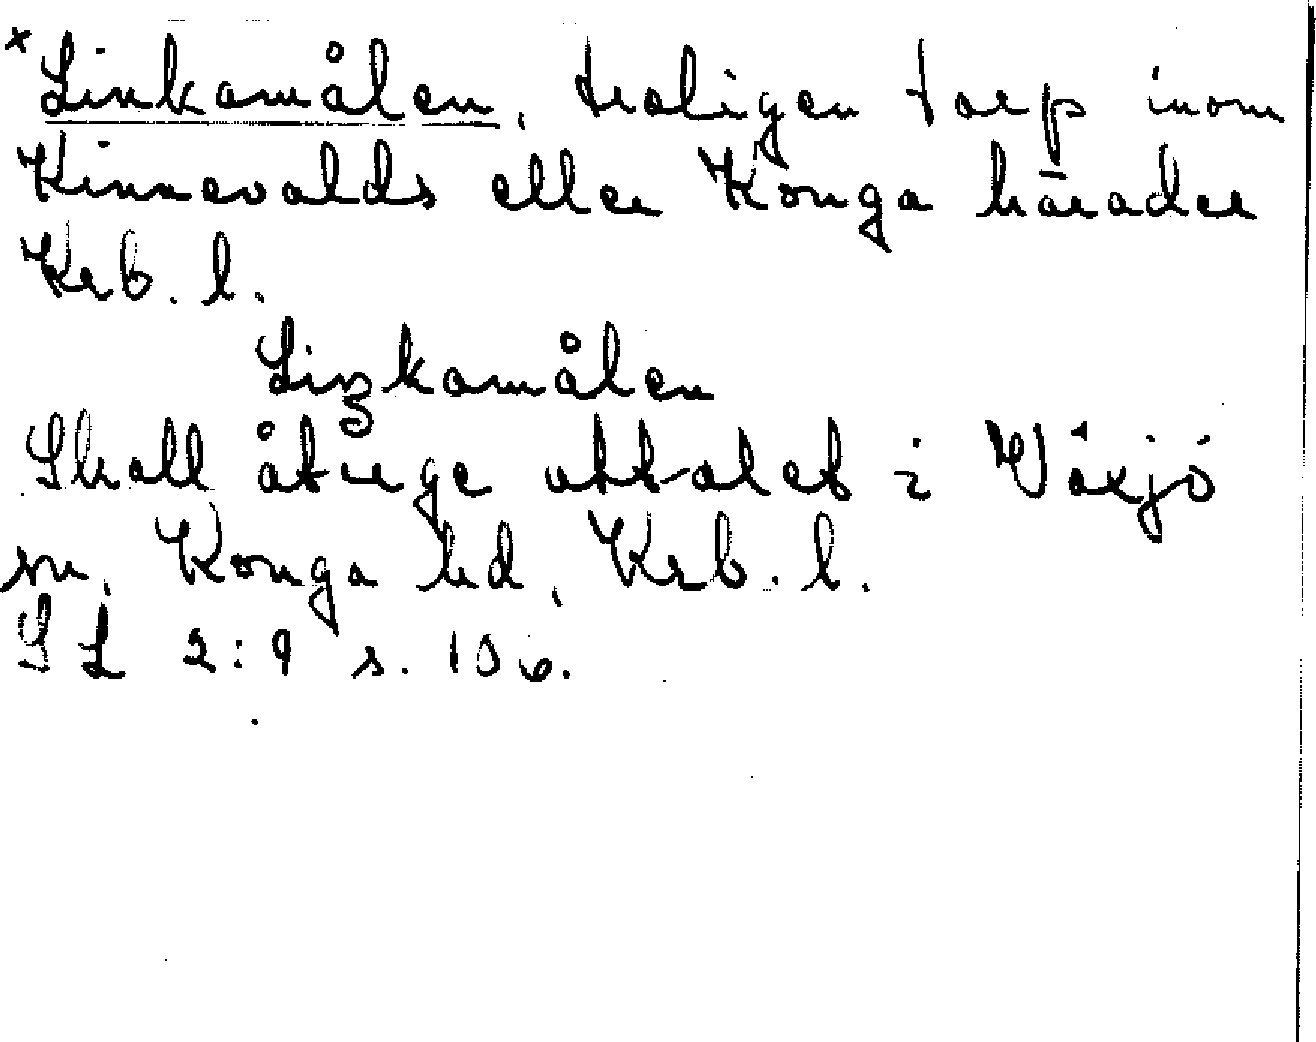 × Linkamålen, troligen torp inom
Kinnevalds eller Konga härader
Krb. l.
Linkamålen
Skall återge uttalet i Växjö
sn, Konga hd, Krb. l.
SL 2:9 s. 106.